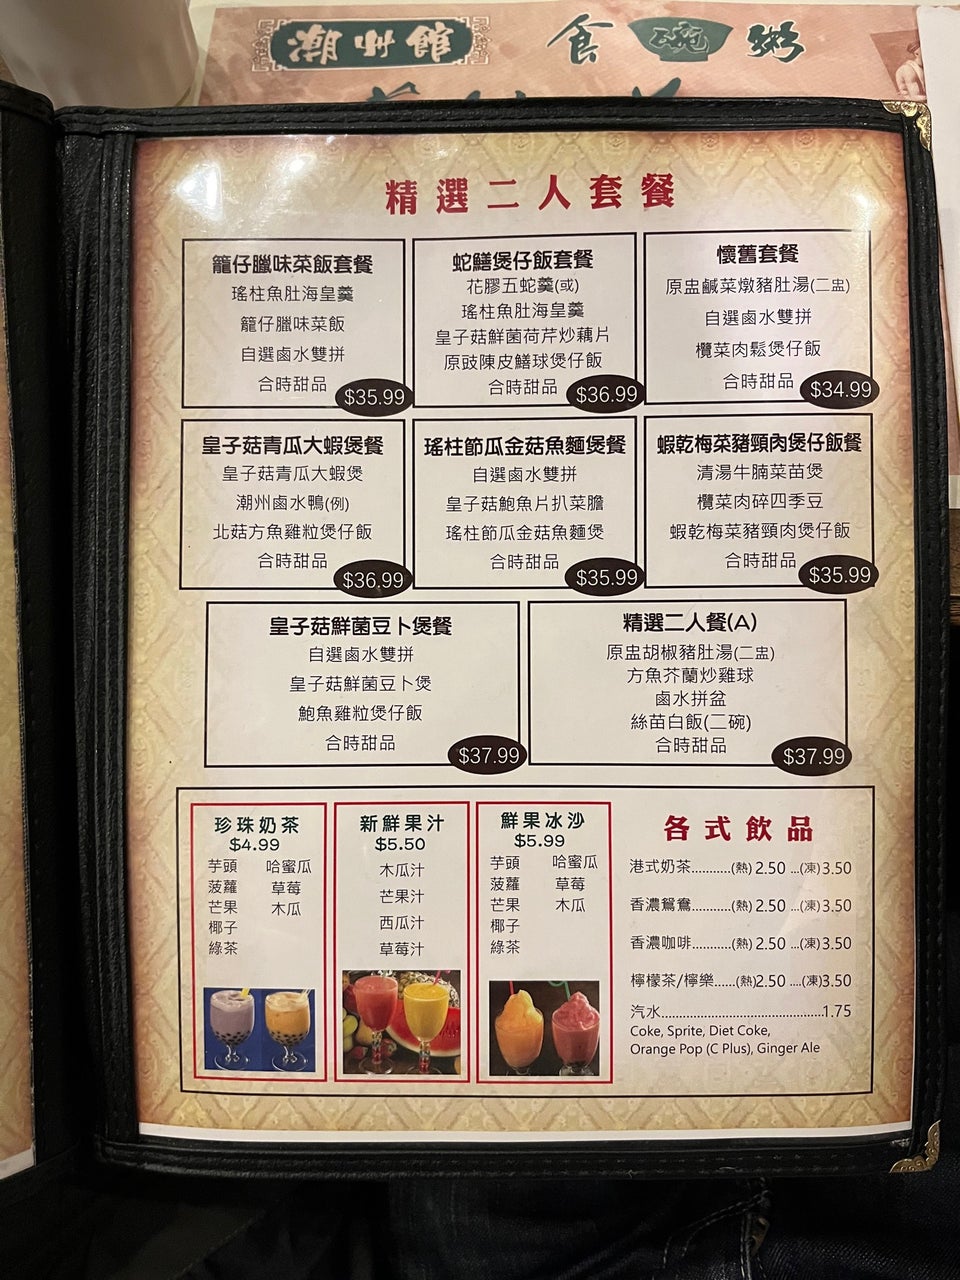 潮州館
食碗粥
精選二人套餐
籠仔臘味菜飯套餐
瑤柱魚肚海皇羹
籠仔臘味菜飯
自選鹵水雙拼
合時甜品
$35.99
蛇鱔煲仔飯套餐
花膠五蛇羹(或)
瑤柱魚肚海皇羹
皇子菇鮮菌荷芹炒藕片
原豉陳皮鱔球煲仔飯
合時甜品
$36.99
懷舊套餐
原盅鹹菜燉豬肚湯(二盅)
自選鹵水雙拼
欖菜肉鬆煲仔飯
合時甜品
$34.99
皇子菇青瓜大蝦煲餐
皇子菇青瓜大蝦煲
潮州鹵水鴨(例)
北菇方魚雞粒煲仔飯
合時甜品
$36.99
瑤柱節瓜金菇魚麵煲餐
自選鹵水雙拼
皇子菇鮑魚片扒菜膽
瑤柱節瓜金菇魚麵煲
合時甜品
$35.99
蝦乾梅菜豬頸肉煲仔飯餐
清湯牛腩菜苗煲
欖菜肉碎四季豆
蝦乾梅菜豬頸肉煲仔飯
合時甜品
$35.99
皇子菇鮮菌豆卜煲餐
自選鹵水雙拼
皇子菇鮮菌豆卜煲
鮑魚雞粒煲仔飯
合時甜品
$37.99
精選二人餐(A)
原盅胡椒豬肚湯(二盅)
方魚芥蘭炒雞球
鹵水拼盆
絲苗白飯(二碗)
合時甜品
$37.99
珍珠奶茶
$4.99
芋頭 哈蜜瓜
菠蘿 草莓
芒果 木瓜
椰子
綠茶
新鮮果汁
$5.50
木瓜汁
芒果汁
西瓜汁
草莓汁
鮮果冰沙
$5.99
芋頭 哈蜜瓜
菠蘿 草莓
芒果 木瓜
椰子
綠茶
各式飲品
港式奶茶...........(熱) 2.50 ...(凍)3.50
香濃鴛鴦...........(熱) 2.50 ...(凍)3.50
香濃咖啡...........(熱) 2.50 ...(凍)3.50
檸檬茶/檸樂......(熱)2.50 ....(凍)3.50
汽水..............................................1.75
Coke, Sprite, Diet Coke,
Orange Pop (C Plus), Ginger Ale